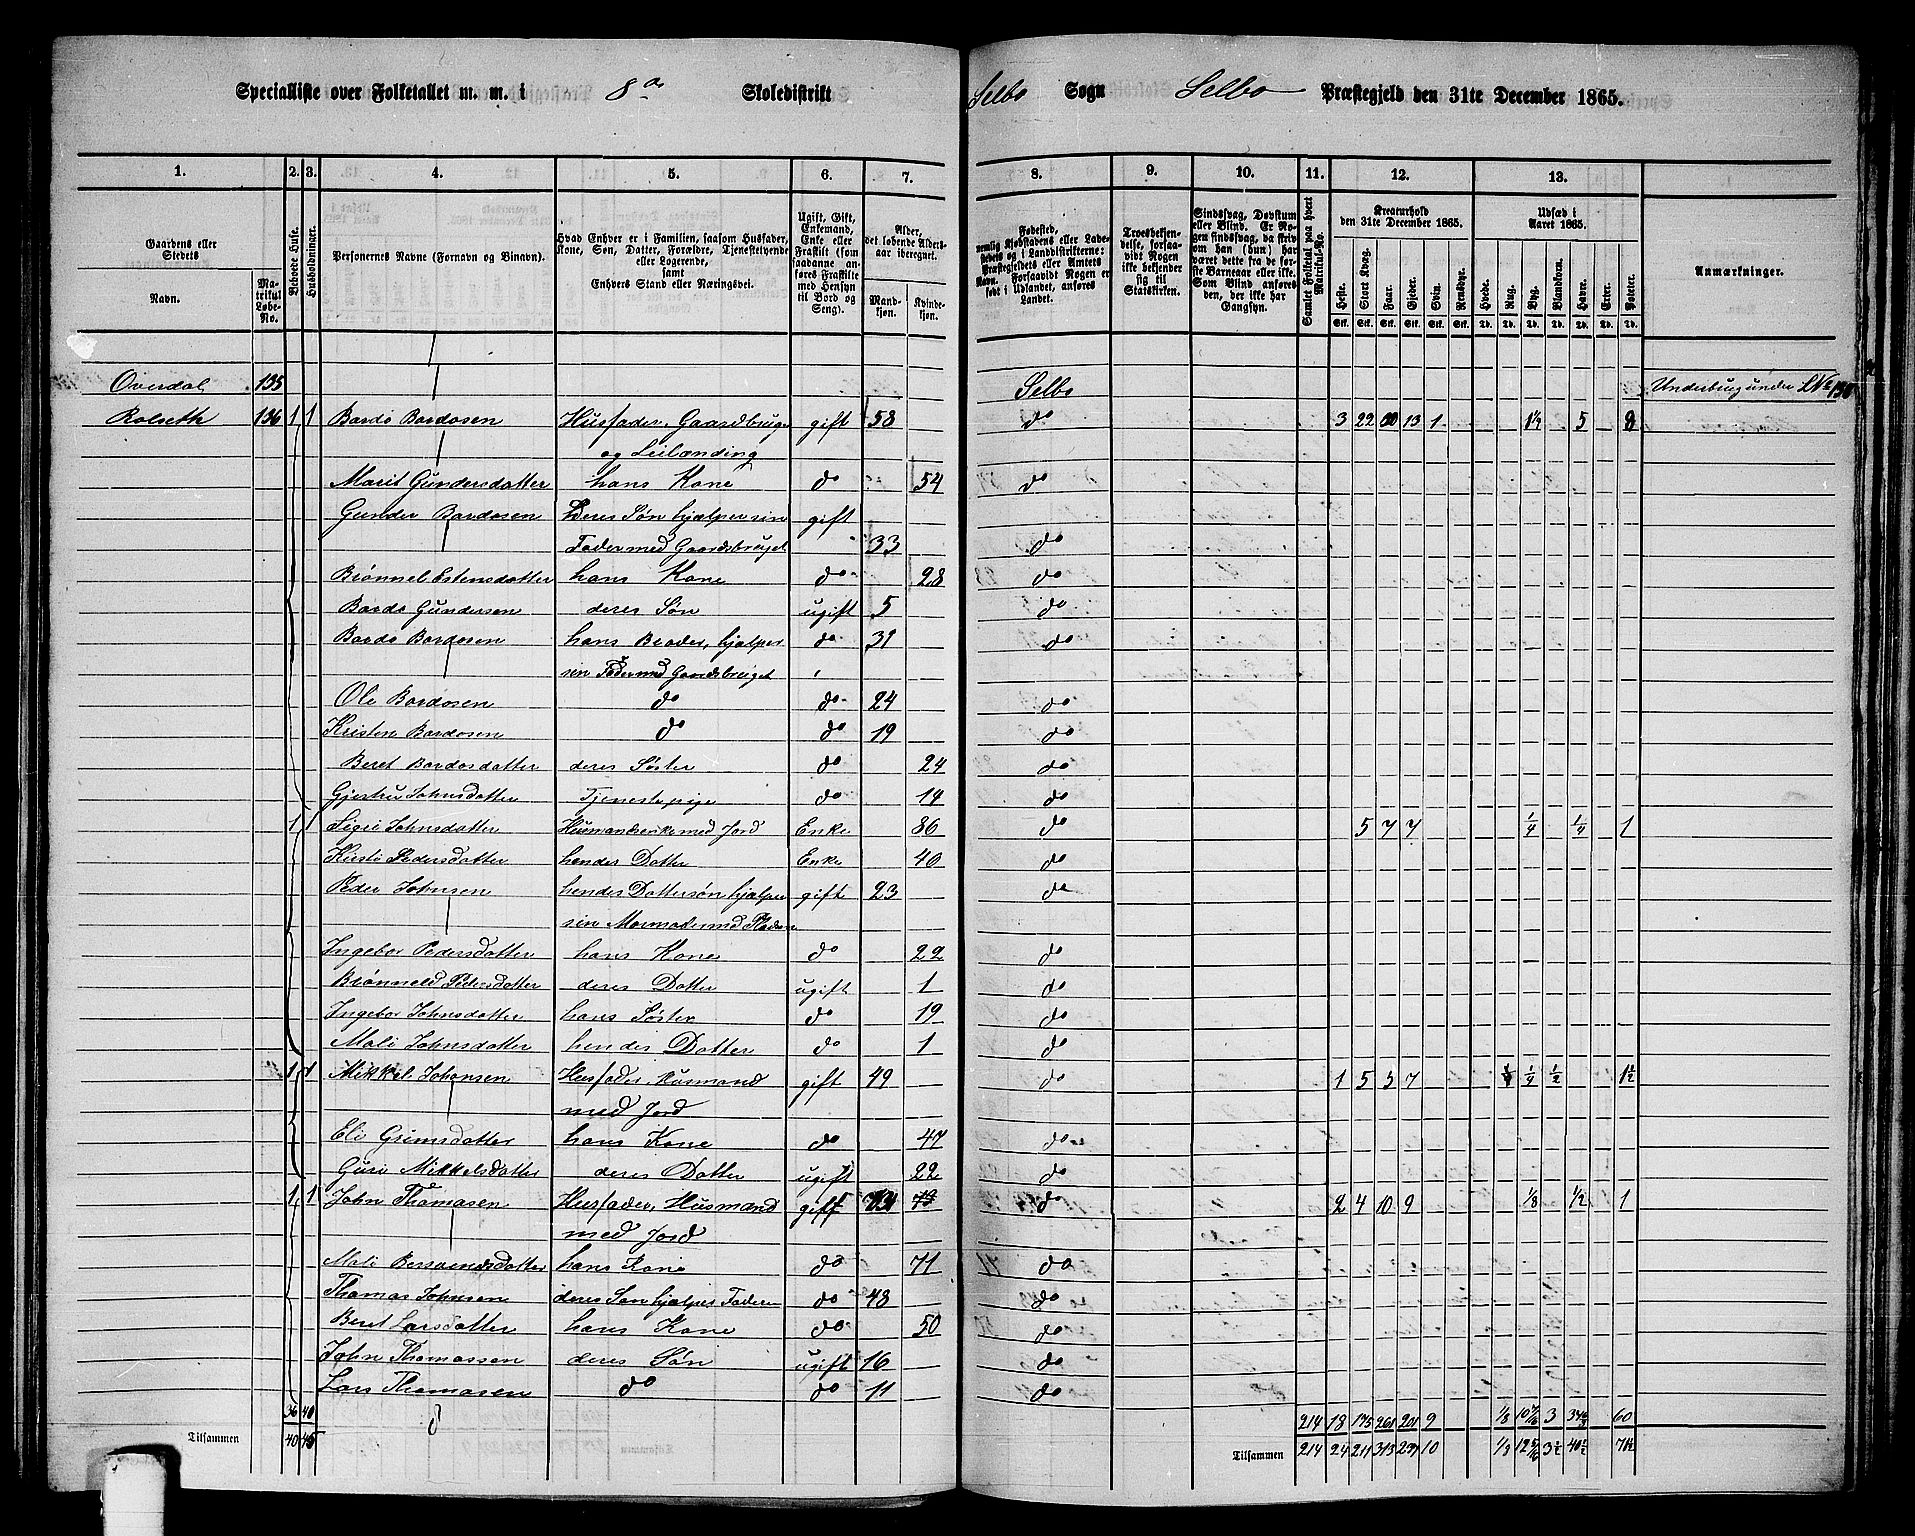 Specialliste over Folketallet m. m. i 8de Skoledistrikt Selbo Sogn Selbo Præstegjeld den 31te December 1865.
1. 2. 3. 4. 5. 6. 7. 8. 9. 10. 11. 12. 13.
Gaardens eller Stedets Navn.
Matrikul Løbe-No.
Beboede Huse.
Husholdninger.
Personernes Navne (Fornavn og Binavn).
Hvad Enhver er i Familien, saasom Husfader, Kone, Søn, Datter, Forældre, Tjenestetyende eller Logerende, samt Enhvers Stand eller Næringsvei.
Ugift, Gift, Enkemand, Enke eller Fraskilt (som saadanne anføres Fraskilte med Hensyn til Bord og Seng).
Alder, det løbende Aldersaar iberegnet.
Mandkjøn. Kvindekjøn.
Fødested, nemlig Kjøbstadens eller Ladestedets og i Landdistrikterne: Præstegjeldets eller Amtets Navn. Forsaavidt Nogen er født i Udlandet, anføres Landet.
Troesbekjendelse, forsaavidt Nogen ikke bekjender sig til Statskirken.
Sindssvag, Døvstum eller Blind. Er Nogen sindssvag, da skrives om han (hun) har været dette fra de første Barneaar eller ikke. Som Blind anføres den, der ikke har Gangsyn.
Samlet Folketal paa hvert Matrikul-No.
Kreaturhold den 31te December 1865.
Heste. Stort Kvæg. Faar. Gjeder. Svin. Rensdyr.
Udsæd i Aaret 1865.
Hvede. Rug. Byg. Blandkorn. Havre. Erter. Poteter.
Anmærkninger.
Overdal 135 Selbo Underbrug under LNo 138
Rolseth 136 1 1 Bardo Bardosen Husfader, Gaardbruger gift 58 do 3 22 13 1 1½ 5 8
og Leilænding
Marit Gundersdatter hans Kone do 54 do
Gunder Bardosen Deres Søn hjælper sin gift
Fader med Gaardsbruget 33 do
Brønnel Estensdatter hans Kone do 28 do
Bardo Gundersen deres Søn ugift 5 do
Bardo Bardosen hans Broder, hjælper do 31 do
sin Fader med Gaardsbruget
Ole Bardosen do do 24 do
Kristen Bardosen do do 19 do
Beret Bardosdatter deres Søster do 24 do
Gjertru Johnsdatter Tjenestepige do 14 do
1 1 Sigri Johnsdatter Husmandsenke med Jord Enke 86 do 5 7 7 ¼ ¼ 1
Kirsti Pedersdatter hendes Datter Enke 40 do
Peder Johnsen hendes Dattersøn hjælper gift 23 do
sin Mormoder med Pladsen
Ingebor Pedersdatter hans Kone do 22 do
Brønneld Pedersdatter deres Datter ugift 1 do
Ingebor Johnsdatter hans Søster do 19 do
Mali Johnsdatter hendes Datter do 1 do
1 1 Mikkel Johansen Husfader, Husmand gift 49 do 1 5 5 7 ¼ ½ 1½
med Jord
Eli Grimsdatter hans Kone do 47 do
Guri Mikkelsdatter deres Datter ugift 22 do
1 1 John Thomasen Husfader, Husmand gift do 2 4 10 9 ⅛ ½ 1
med Jord
Mali hans Kone do 71 do
Thomas Johnsen deres Søn hjælper Faderen do 48 do
Beret Larsdatter hans Kone do 50 do
John Thomassen deres Søn ugift 16 do
Lars Thomasen do do 11 do
36 40 214 18 175 261 201 9 ⅛ 3 60
Tilsammen 40 45 Tilsammen 214 24 211 313 239 10 3½ 40½ 71½